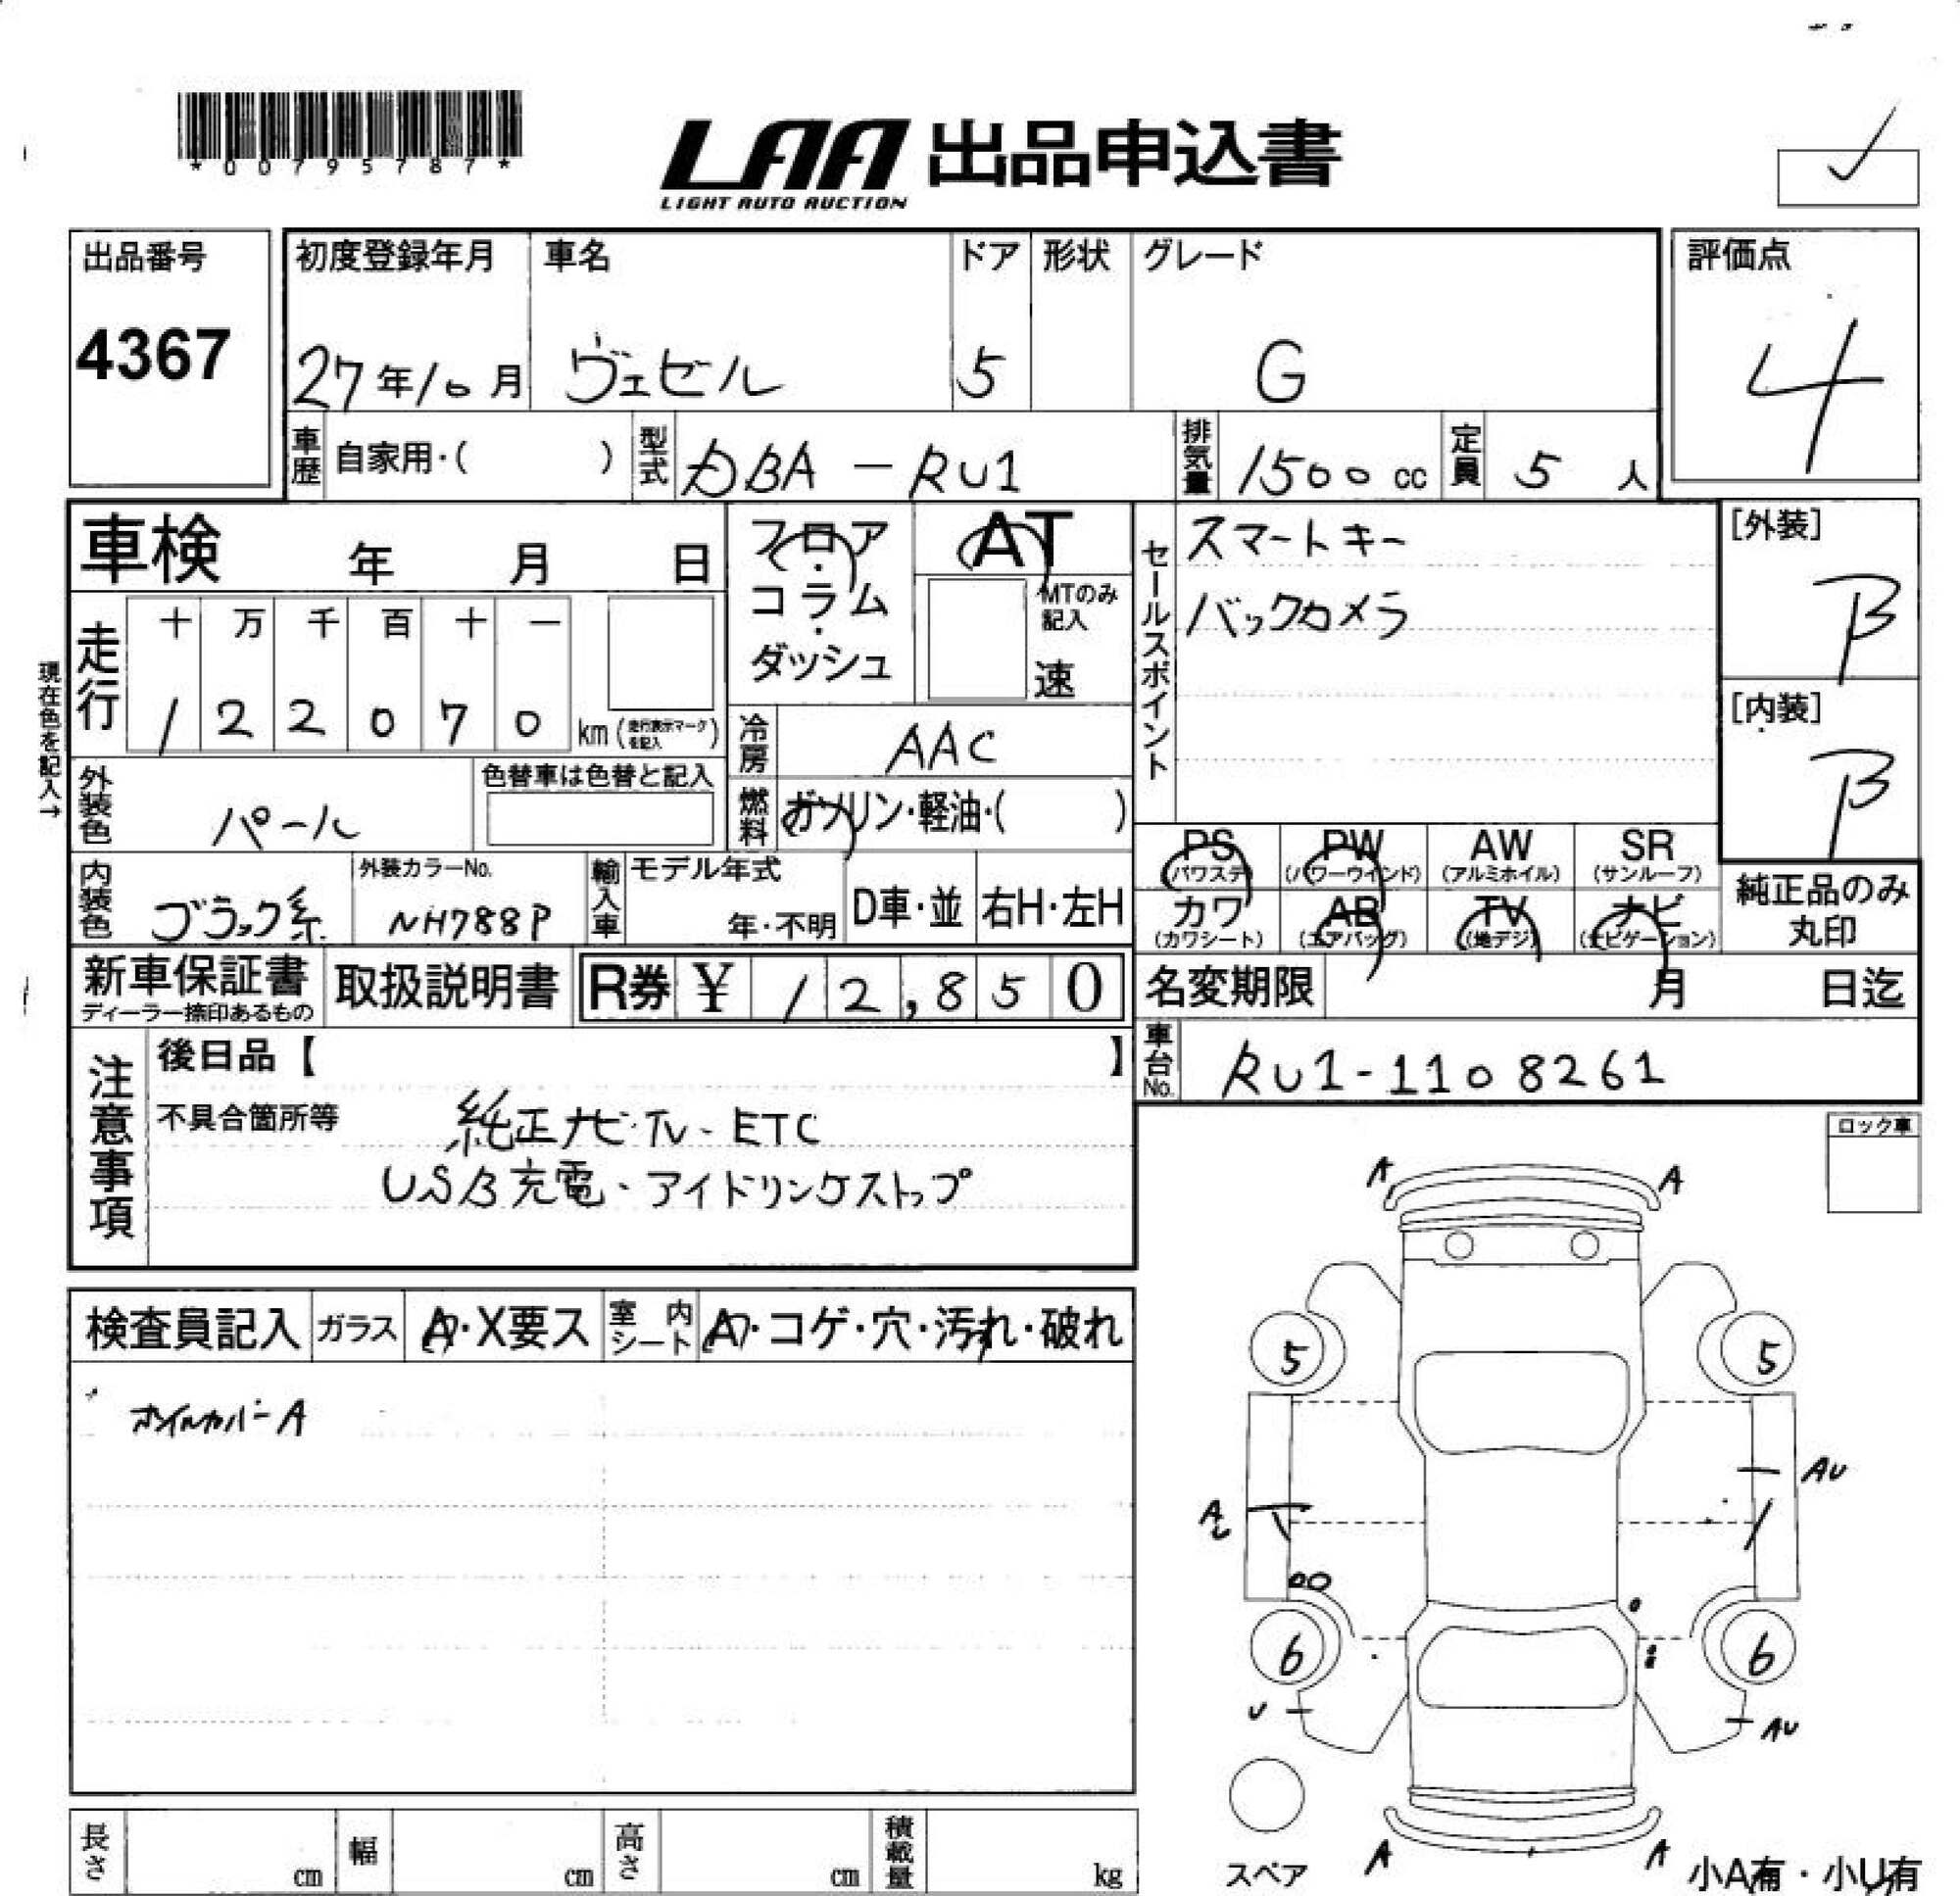 *00795787*
LAA 出品申込書
LIGHT AUTO AUCTION
出品番号
4367
初度登録年月
27年10月
車名
ヴェゼル
ドア
5
形状
グレード
G
評価点
4
車歴 自家用・( )
型式 DBA-RU1
排気量 1500 cc
定員 5 人
車検 年 月 日
フロア・コラム・ダッシュ
AT
MTのみ記入
速
セールスポイント
スマートキー
バックカメラ
[外装]
B
[内装]
B
現在色を記入→
走行
十 万 千 百 十 一
1 2 2 0 7 0 km (走行表示マークを記入)
冷房 AAC
外装色 パール
色替車は色替と記入
燃料 ガソリン・軽油・( )
PS (パワステ)
PW (パワーウインド)
AW (アルミホイル)
SR (サンルーフ)
カワ (カワシート)
AB (エアバッグ)
TV (地デジ)
ナビ (ナビゲーション)
純正品のみ丸印
内装色 ブラック系
外装カラーNo.
NH788P
輸入車
モデル年式
年・不明
D車・並
右H・左H
新車保証書
ディーラー捺印あるもの
取扱説明書
R券 ¥ 12,850
名変期限 月 日迄
車台No. RU1-1108261
注意事項
後日品【 】
不具合箇所等
純正ナビ・TV・ETC
USB充電・アイドリングストップ
ロック車
検査員記入
ガラス A・X要ス
室内シート A・コゲ・穴・汚れ・破れ
ホイルカバーA
A A
5 5
AU
A
6 6
U
AU
A A
スペア
小A有・小U有
長さ cm
幅 cm
高さ cm
積載量 kg